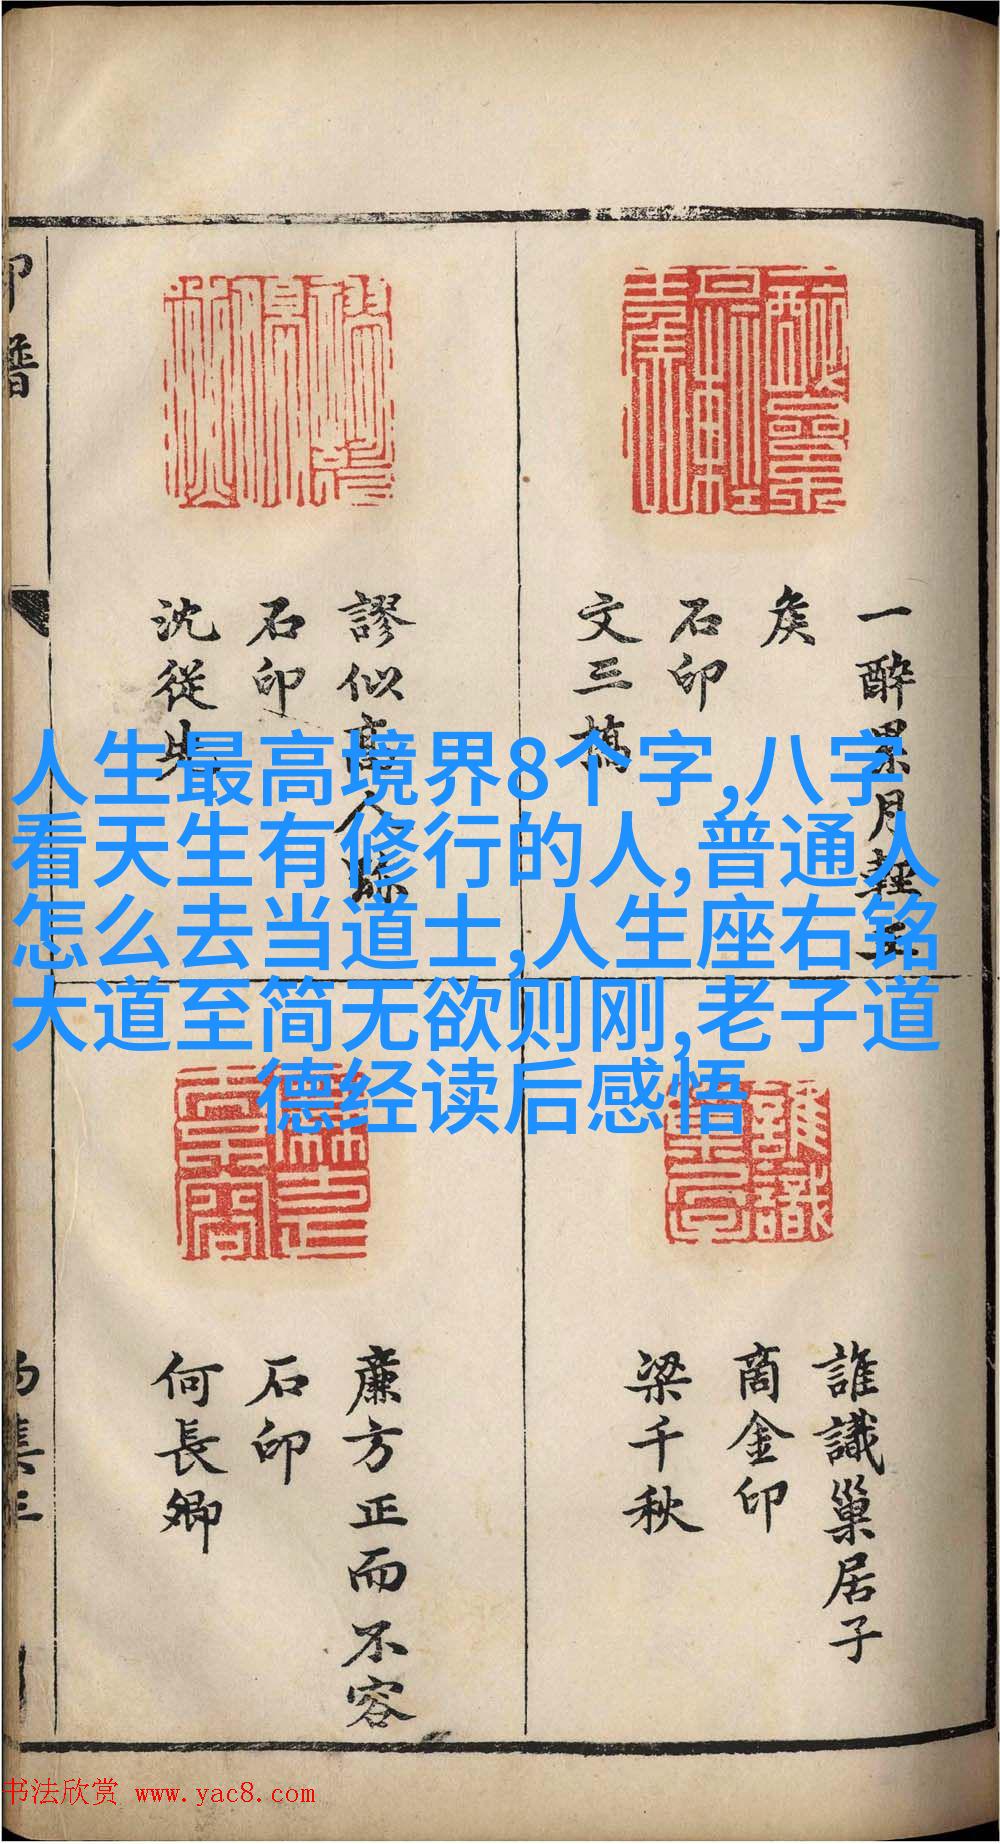 一醉累月輕王
矦
石印
文三橋
謬似高人賖
石印
沈從先
人生最高境界8个字,八字
看天生有修行的人,普通人
怎么去当道士,人生座右铭
大道至简无欲则刚,老子道
德经读后感悟
誰識巢居子
商金印
梁千秋
廉方正而不容
石印
何長卿
书法欣赏 www.yac8.com